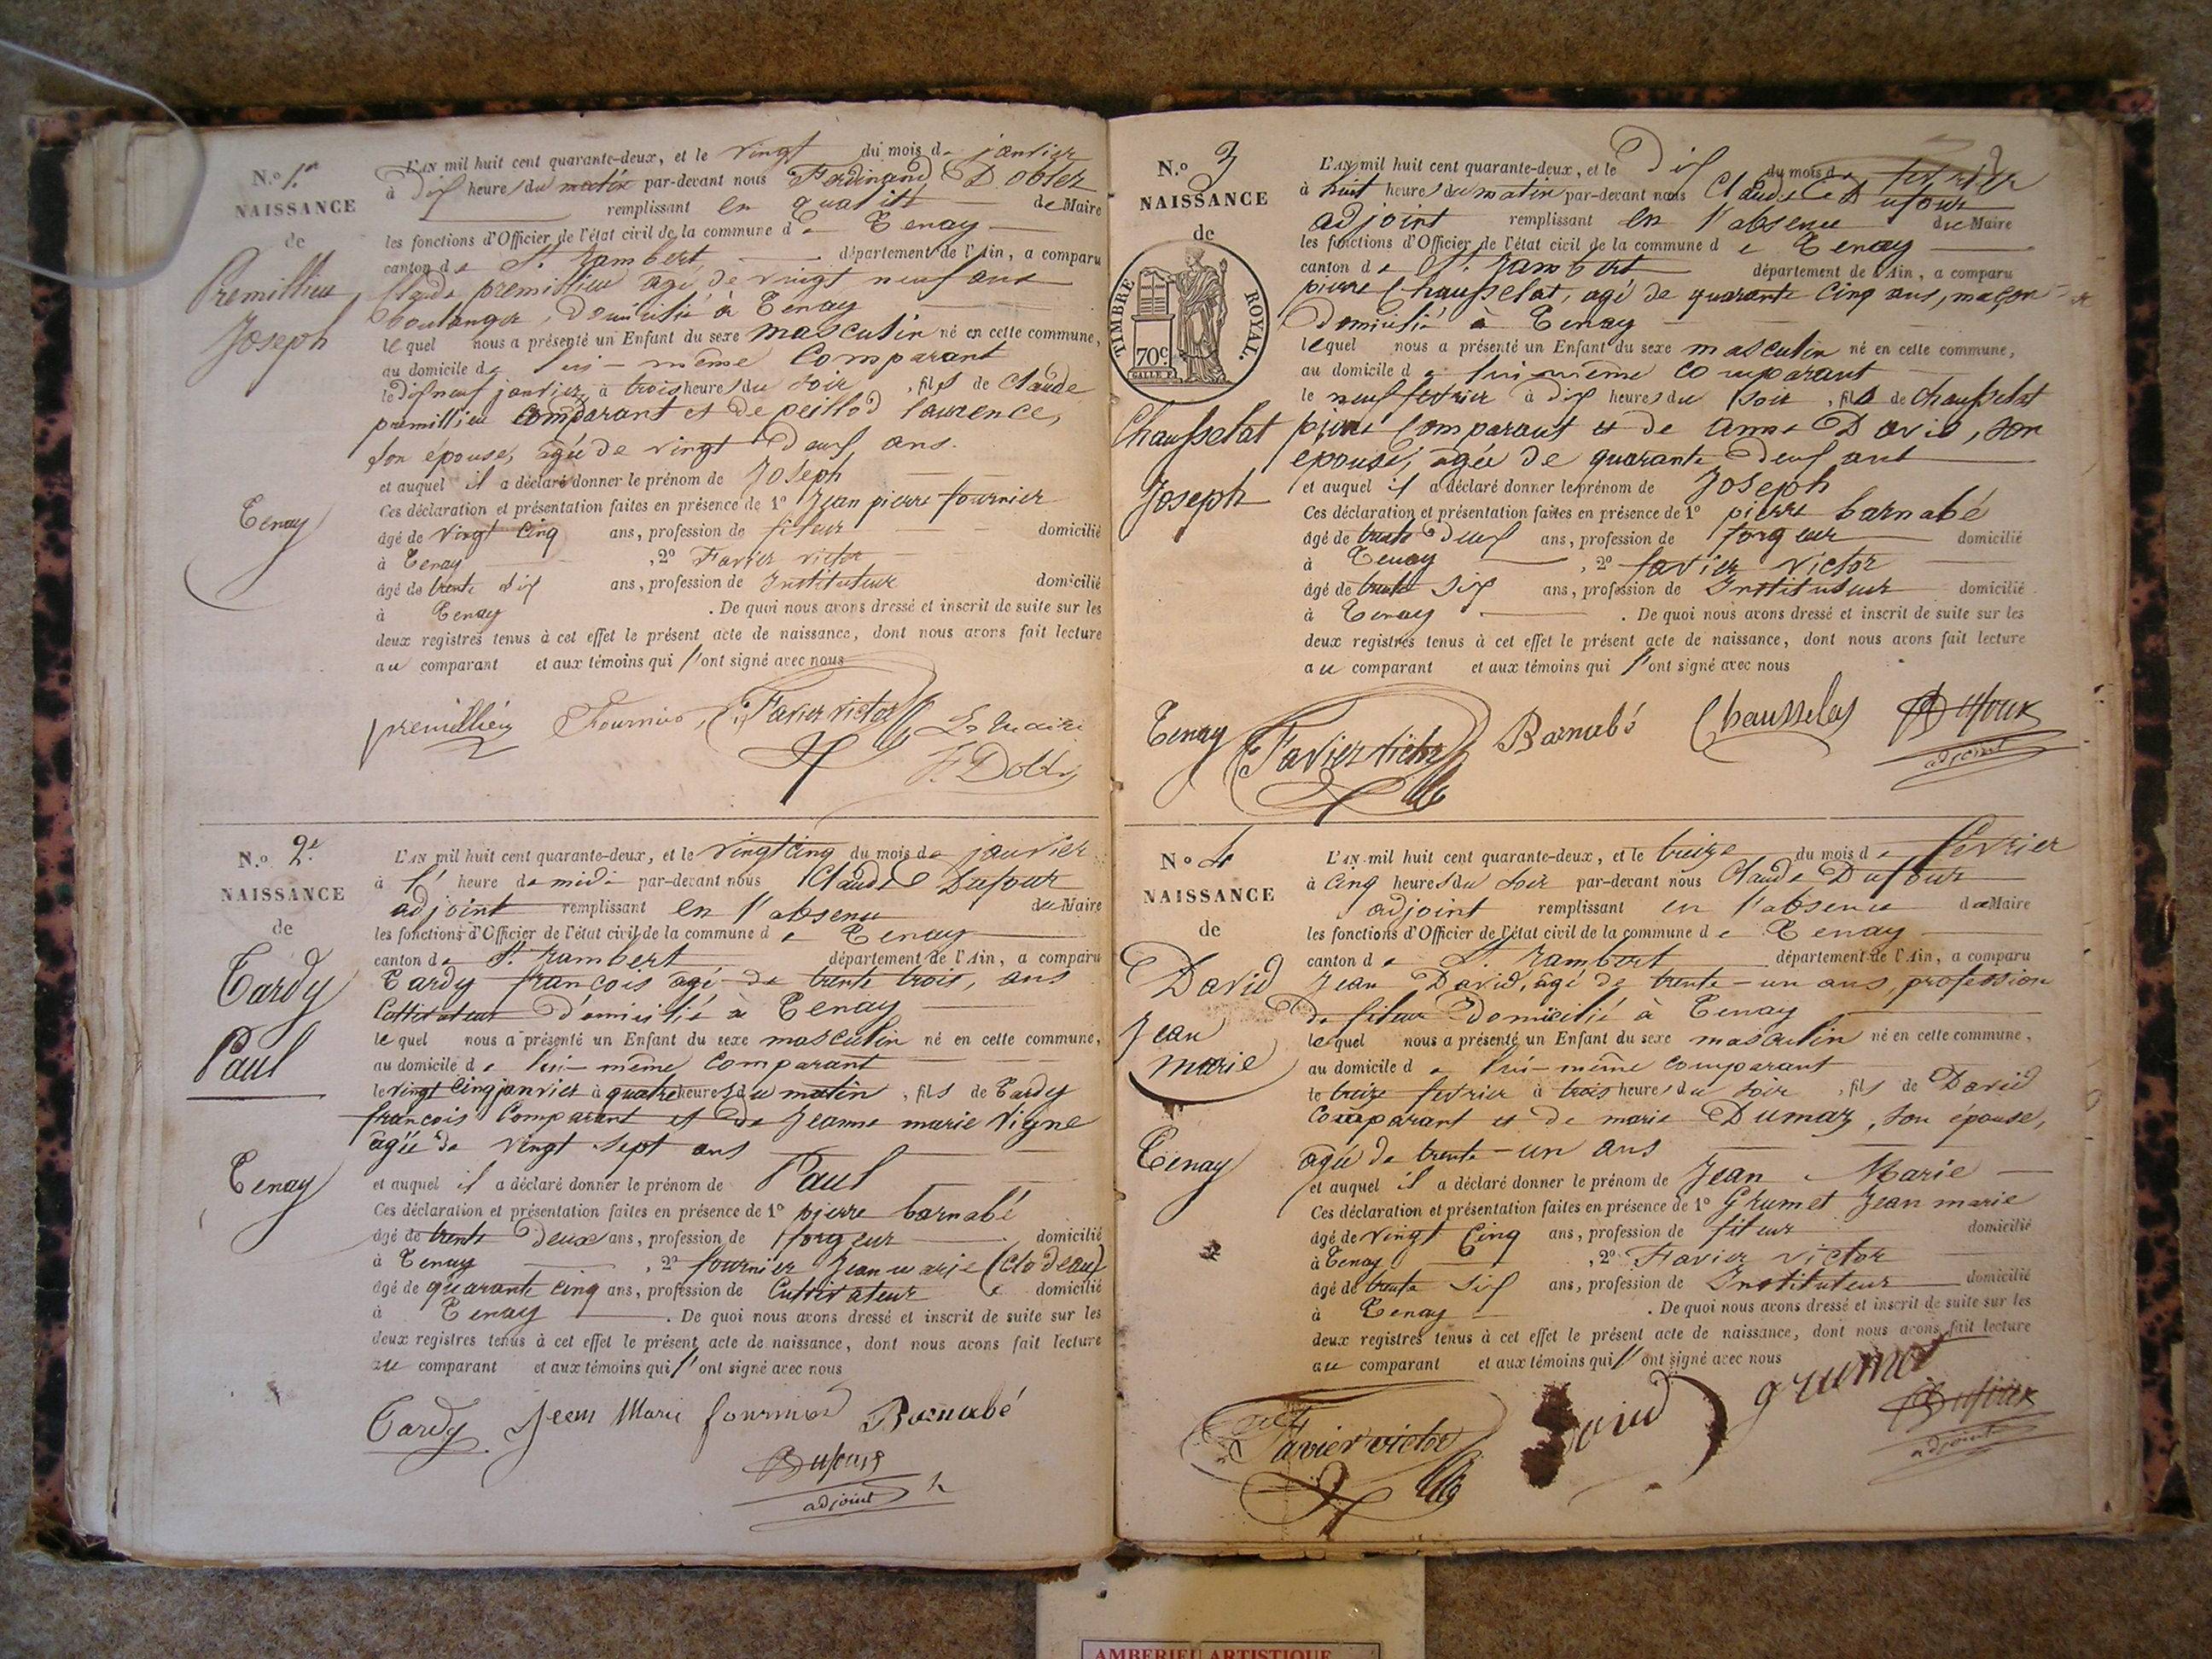 N.o 1.er
NAISSANCE
de
Premillieu
Joseph
Tenay
L'AN mil huit cent quarante-deux, et le vingt du mois de janvier
à dix heures du matin par-devant nous Ferdinand Dobler
remplissant en qualité de Maire
les fonctions d'Officier de l'état civil de la commune de Tenay
canton de St. Rambert, département de l'Ain, a comparu
Claude premillieu agé de vingt neuf ans
boulanger, domicilié à Tenay
lequel nous a présenté un Enfant du sexe masculin né en cette commune,
au domicile de lui-même Comparant
le dix neuf janvier, à trois heures du soir, fils de Claude
premillieu comparant et de peillod laurence,
son épouse, agée de vingt deux ans.
et auquel il a déclaré donner le prénom de Joseph
Ces déclaration et présentation faites en présence de 1º Jean pierre fournier
âgé de vingt cinq ans, profession de fileur domicilié
à Tenay, 2º Favier victor
âgé de trente six ans, profession de Instituteur domicilié
à Tenay. De quoi nous avons dressé et inscrit de suite sur les
deux registres tenus à cet effet le présent acte de naissance, dont nous avons fait lecture
au comparant et aux témoins qui l'ont signé avec nous
premillieu Fournier Favier victor Le Maire
F. Dobler
N.o 2.e
NAISSANCE
de
Tardy
Paul
Tenay
L'AN mil huit cent quarante-deux, et le vingt cinq du mois de janvier
à l' heure de midi par-devant nous Claude Dufour
adjoint remplissant en l'absence du Maire
les fonctions d'Officier de l'état civil de la commune de Tenay
canton de St. Rambert département de l'Ain, a comparu
Tardy françois agé de trente trois, ans
Cultivateur domicilié à Tenay
lequel nous a présenté un Enfant du sexe masculin né en cette commune,
au domicile de lui-même comparant
le vingt cinq janvier à quatre heures du matin, fils de Tardy
françois Comparant et de Jeanne marie Vigne
agée de vingt sept ans
et auquel il a déclaré donner le prénom de Paul
Ces déclaration et présentation faites en présence de 1º pierre barnabé
âgé de trente deux ans, profession de forgeur domicilié
à Tenay, 2º fournier Jean marie (Clodeau)
âgé de quarante cinq ans, profession de Cultivateur domicilié
à Tenay. De quoi nous avons dressé et inscrit de suite sur les
deux registres tenus à cet effet le présent acte de naissance, dont nous avons fait lecture
au comparant et aux témoins qui l'ont signé avec nous
Tardy Jean Marie fournier Barnabé
Dufour
adjoint
N.o 3
NAISSANCE
de
TIMBRE ROYAL.
70c.
Chausselat
Joseph
Tenay
L'AN mil huit cent quarante-deux, et le Dix du mois de fevrier
à huit heures du matin par-devant nous Claude Dufour
adjoint remplissant en l'absence du Maire
les fonctions d'Officier de l'état civil de la commune de Tenay
canton de St. Rambert département de l'Ain, a comparu
pierre Chausselat, agé de quarante cinq ans, maçon
Domicilié à Tenay
lequel nous a présenté un Enfant du sexe masculin né en cette commune,
au domicile de lui même comparant
le neuf fevrier à dix heures du soir, fils de Chausselat
pierre Comparant et de anne David, son
epouse, agée de quarante deux ans
et auquel il a déclaré donner le prénom de Joseph
Ces déclaration et présentation faites en présence de 1º pierre barnabé
âgé de trente deux ans, profession de forgeur domicilié
à Tenay, 2º favier victor
âgé de trente six ans, profession de Instituteur domicilié
à Tenay. De quoi nous avons dressé et inscrit de suite sur les
deux registres tenus à cet effet le présent acte de naissance, dont nous avons fait lecture
au comparant et aux témoins qui l'ont signé avec nous
Favier victor Barnabé Chausselas Dufour
adjoint
N.o 4
NAISSANCE
de
David
Jean
marie
Tenay
L'AN mil huit cent quarante-deux, et le treize du mois de fevrier
à cinq heures du soir par-devant nous Claude Dufour
adjoint remplissant en l'absence du Maire
les fonctions d'Officier de l'état civil de la commune de Tenay
canton de St. Rambert département de l'Ain, a comparu
Jean David, agé de trente-un ans, profession
de fileur Domicilié à Tenay
lequel nous a présenté un Enfant du sexe masculin né en cette commune,
au domicile de lui-même comparant
le treize fevrier à trois heures du soir, fils de David
Comparant et de marie Dumaz, son épouse,
agée de trente-un ans
et auquel il a déclaré donner le prénom de Jean Marie
Ces déclaration et présentation faites en présence de 1º Grumet Jean marie
âgé de vingt Cinq ans, profession de fileur domicilié
à Tenay, 2º Favier victor
âgé de trente six ans, profession de Instituteur domicilié
à Tenay. De quoi nous avons dressé et inscrit de suite sur les
deux registres tenus à cet effet le présent acte de naissance, dont nous avons fait lecture
au comparant et aux témoins qui l'ont signé avec nous
Favier victor David grumet Dufour
adjoint
AMBERIEU ARTISTIQUE